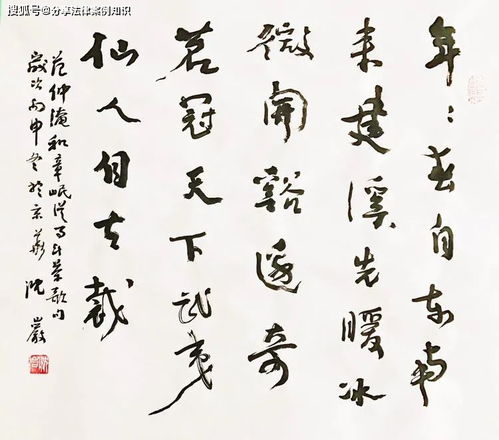 搜狐号@分享法律案例知识
年〻春自东南
来建溪先暖冰
微開谿邊奇
茗冠天下武夷
仙人自古栽
范仲淹和章岷従事鬥茶歌句
歲次丙申冬於京華 沈巖